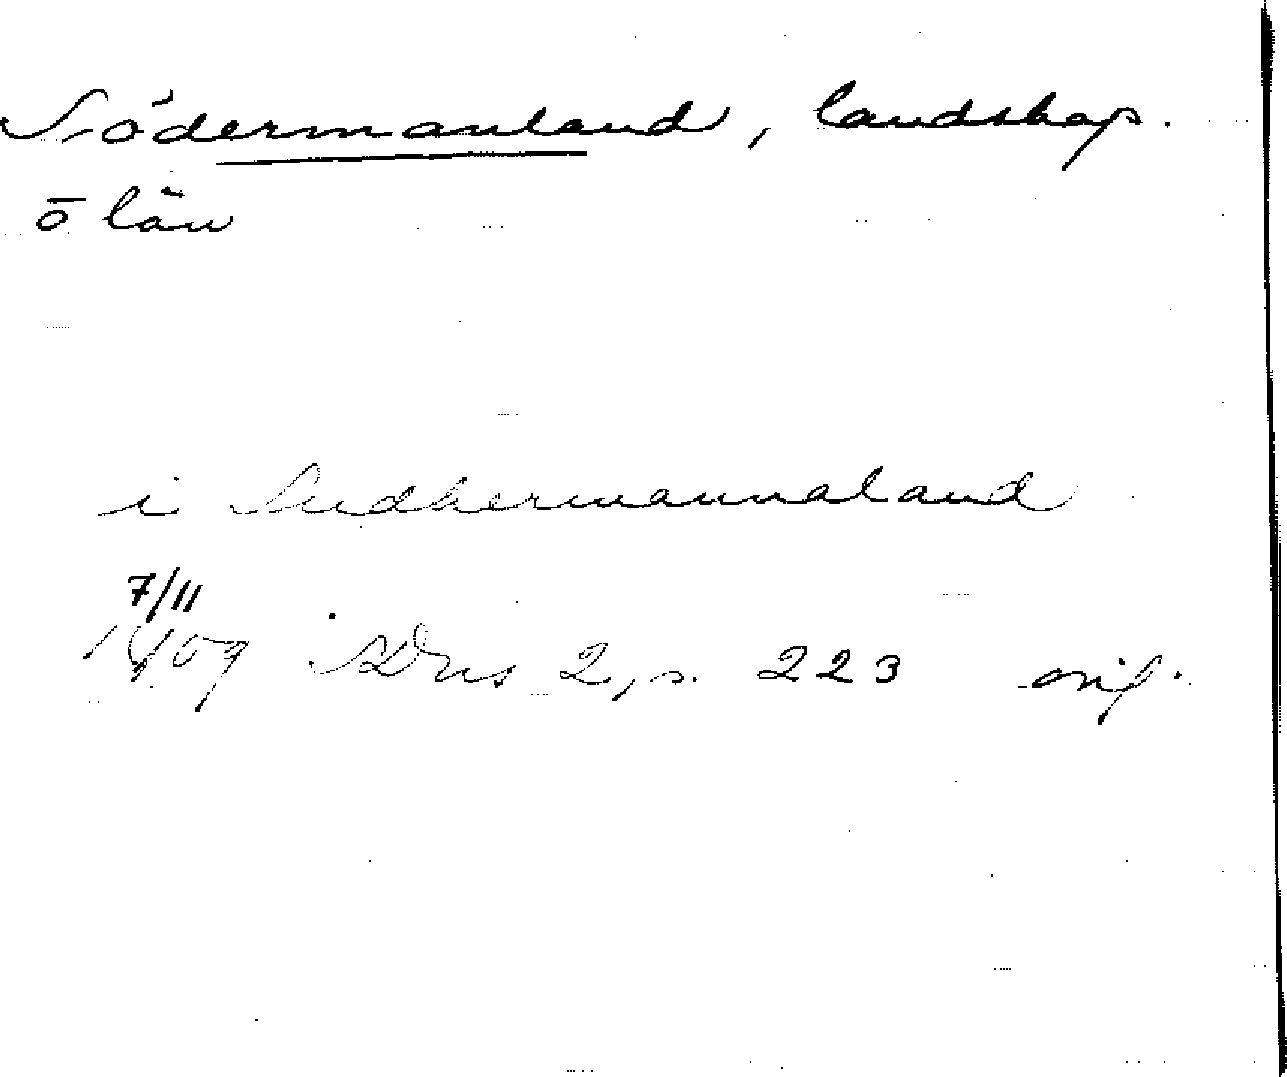 Södermanland, landskap.
o län
i Sudhermannaland
7/11
1409 SDns 2, s. 223 orig.